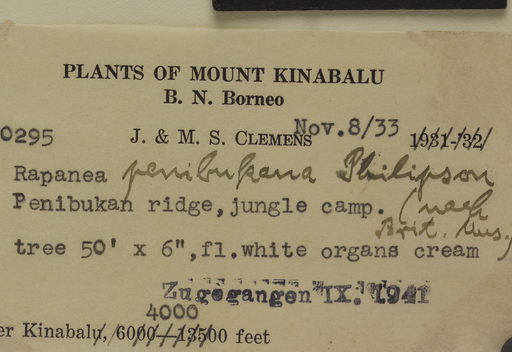 PLANTS OF MOUNT KINABALU
B. N. Borneo
0295 J. & M. S. CLEMENS Nov.8/33 1931-/32/
Rapanea penibukana Philipson
Penibukan ridge,jungle camp. (nach
Brit. Mus.)
tree 50' x 6",fl.white organs cream
Zugegangen IX. 1941
4000
er Kinabalu, 6000—13500 feet